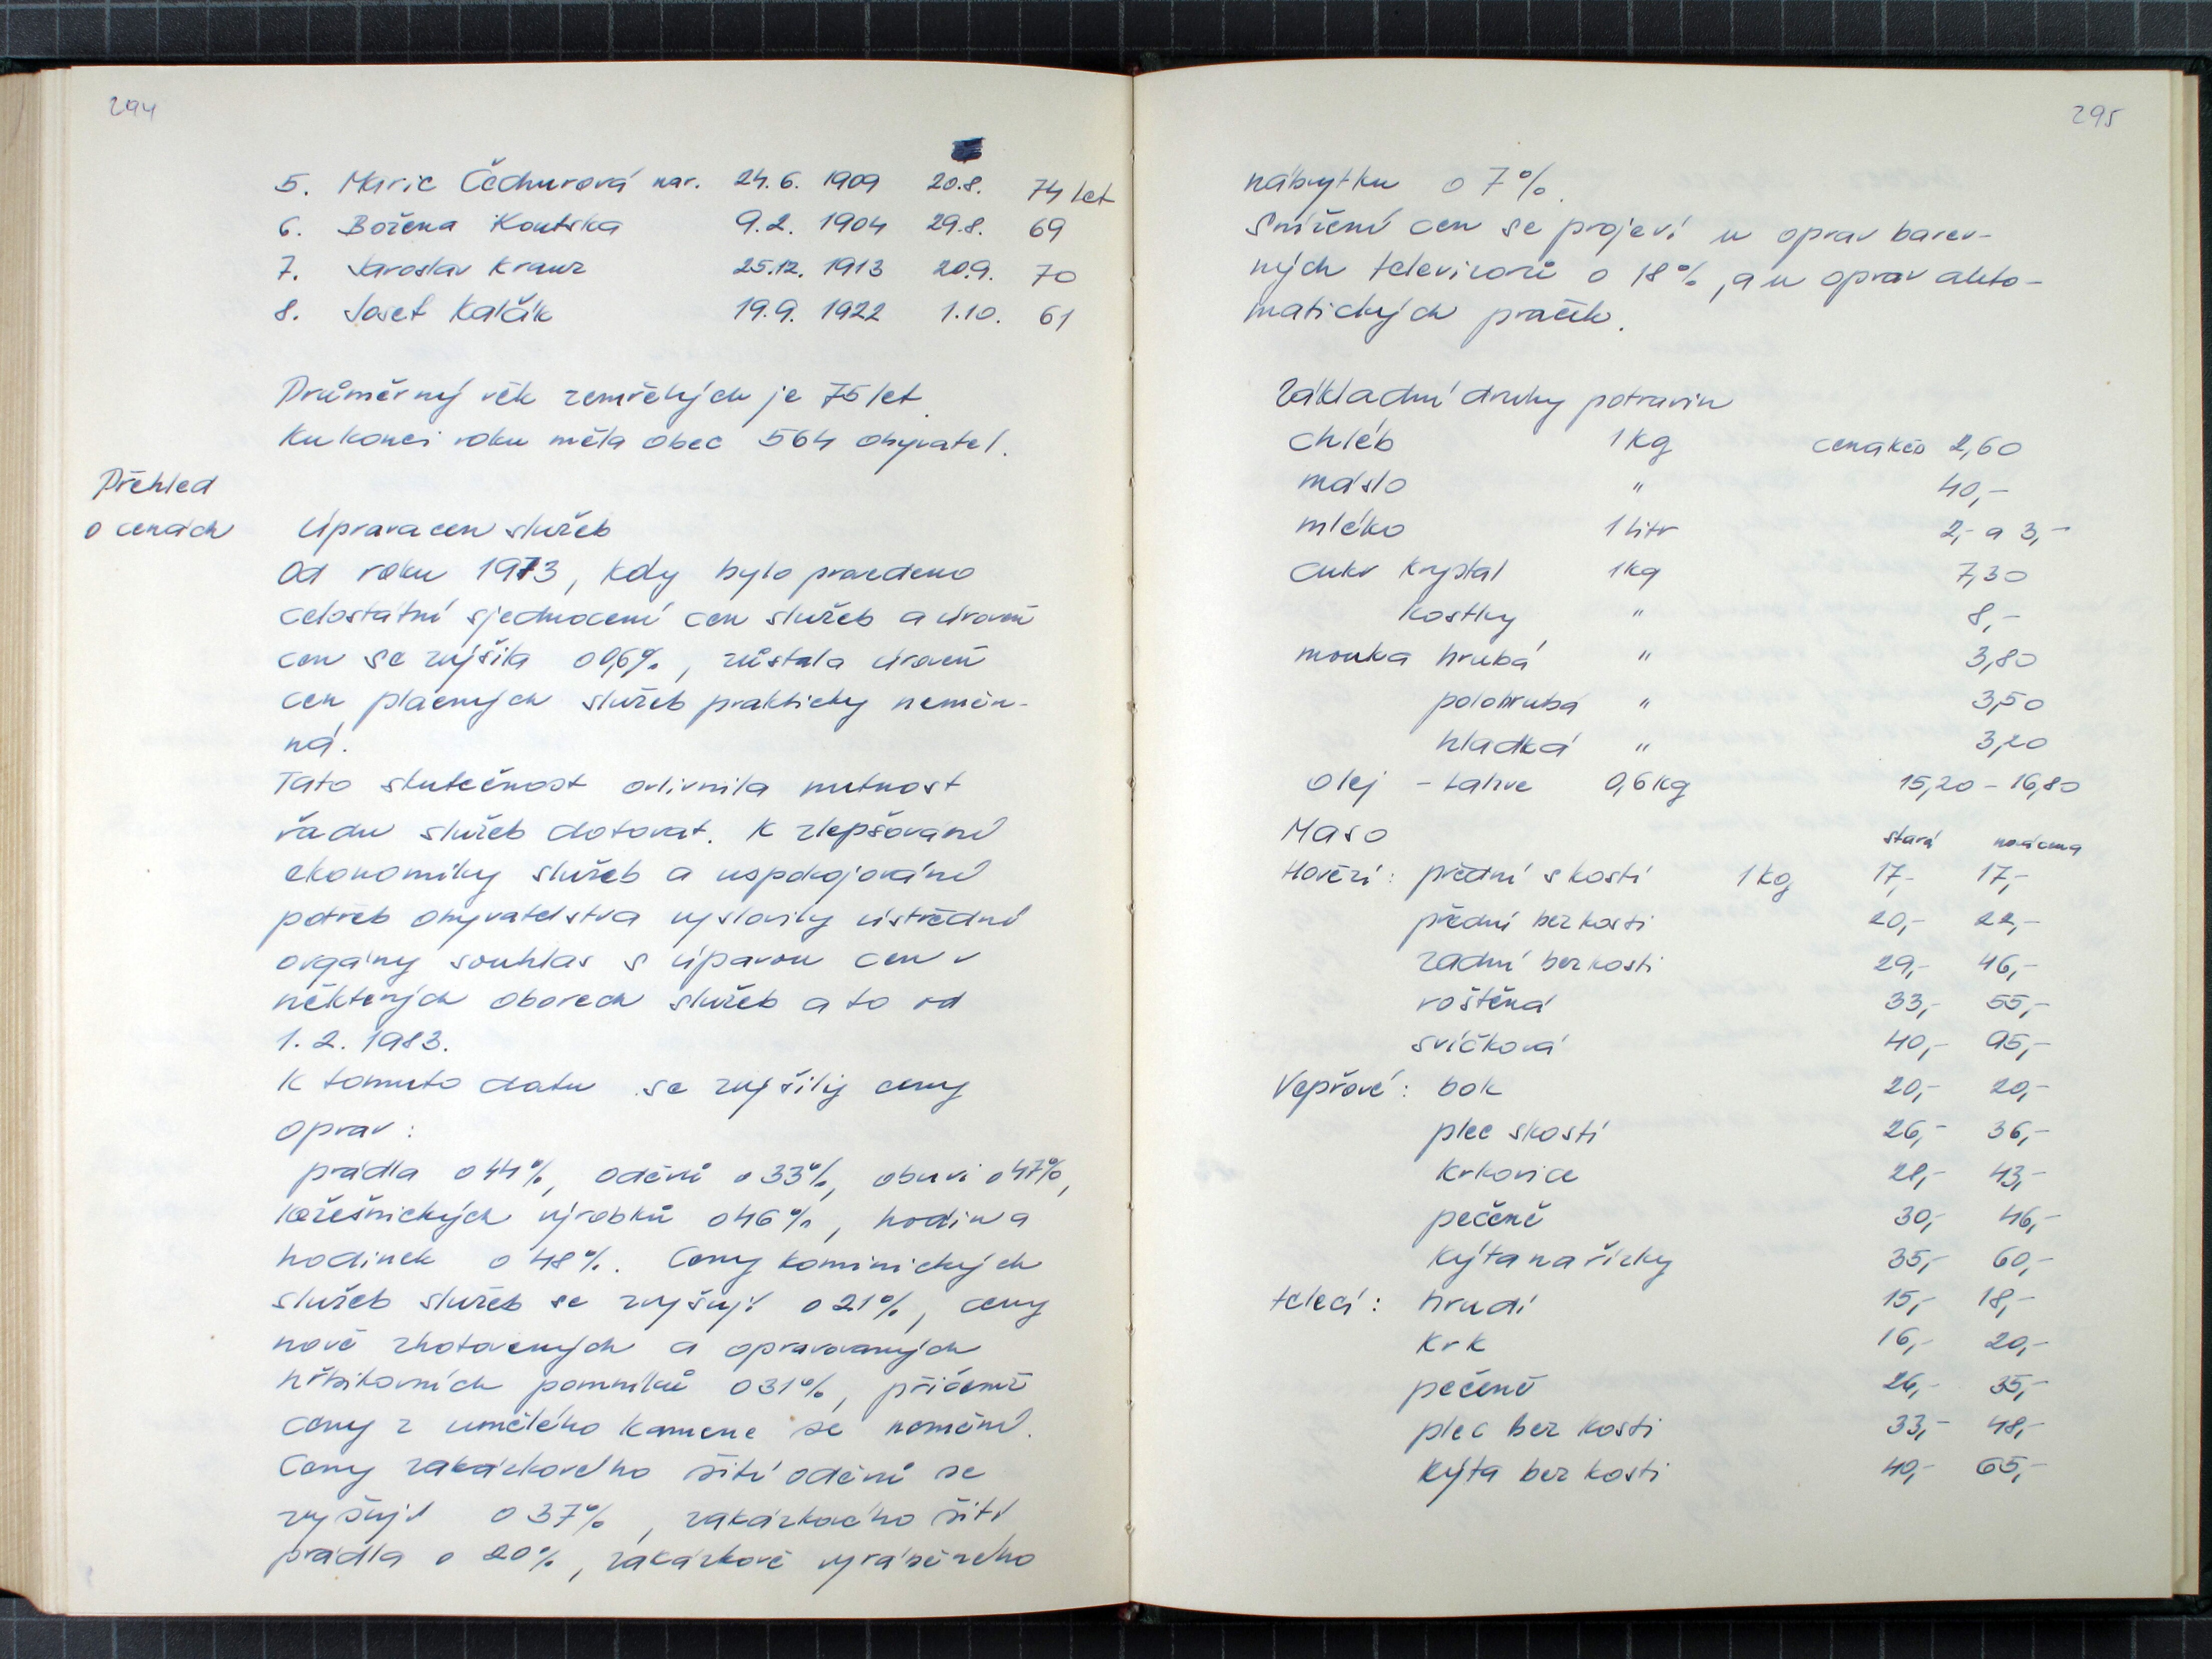 294
5. Marie Čechurová nar. 24.6. 1909 20.8. 74 let
6. Božena Koutska 9.2. 1904 29.8. 69
7. Jaroslav Kranz 25.12. 1913 20.9. 70
8. Josef Kalčík 19.9. 1922 1.10. 61
Průměrný věk zemřelých je 75 let.
Ku konci roku měla obec 564 obyvatel.
Přehled
o cenách Úprava cen služeb
Od roku 1973, kdy bylo provedeno
celostátní sjednocení cen služeb a úroveň
cen se zvýšila o 0,6%, zůstala úroveň
cen placených služeb prakticky neměn-
ná.
Tato skutečnost ovlivnila nutnost
řadu služeb dotovat. K zlepšování
ekonomiky služeb a uspokojování
potřeb obyvatelstva vyslovily ústřední
orgány souhlas s úpavou cen v
některých oborech služeb a to od
1. 2. 1983.
K tomuto datu se zvýšily ceny
oprav:
prádla o 44%, oděvů o 33%, obuvi o 47%,
kožešnických výrobků o 46%, hodin a
hodinek o 48%. Ceny kominických
služeb služeb se zvyšují o 21%, ceny
nově zhotovených a opravovaných
hřbitovních pomníků o 31%, přičemž
ceny z umělého kamene se nemění.
Ceny zakázkového šití oděvů se
zvyšují o 37%, zakázkového šití
prádla o 20%, zakázkově vyráběného
295
nábytku o 7%.
Snížení cen se projeví u oprav barev-
ných televizorů o 18%, a u oprav auto-
matických praček.
Základní druhy potravin
chléb 1 kg cena kčs 2,60
máslo " 40,-
mléko 1 litr 2,- a 3,-
cukr krystal 1 kg 7,30
kostky " 8,-
mouka hrubá " 3,80
polohrubá " 3,50
hladká " 3,20
olej - lahve 0,6 kg 15,20 - 16,80
Maso stará nová cena
Hovězí: přední s kostí 1 kg 17,- 17,-
přední bez kosti 20,- 22,-
zadní bez kosti 29,- 46,-
roštěná 33,- 55,-
svíčková 40,- 95,-
Vepřové: bok 20,- 20,-
plec s kostí 26,- 36,-
krkovice 28,- 43,-
pečeně 30,- 46,-
kýta na řízky 35,- 60,-
telecí: hrudí 15,- 18,-
krk 16,- 20,-
pečeně 26,- 35,-
plec bez kosti 33,- 48,-
kýta bez kosti 40,- 65,-